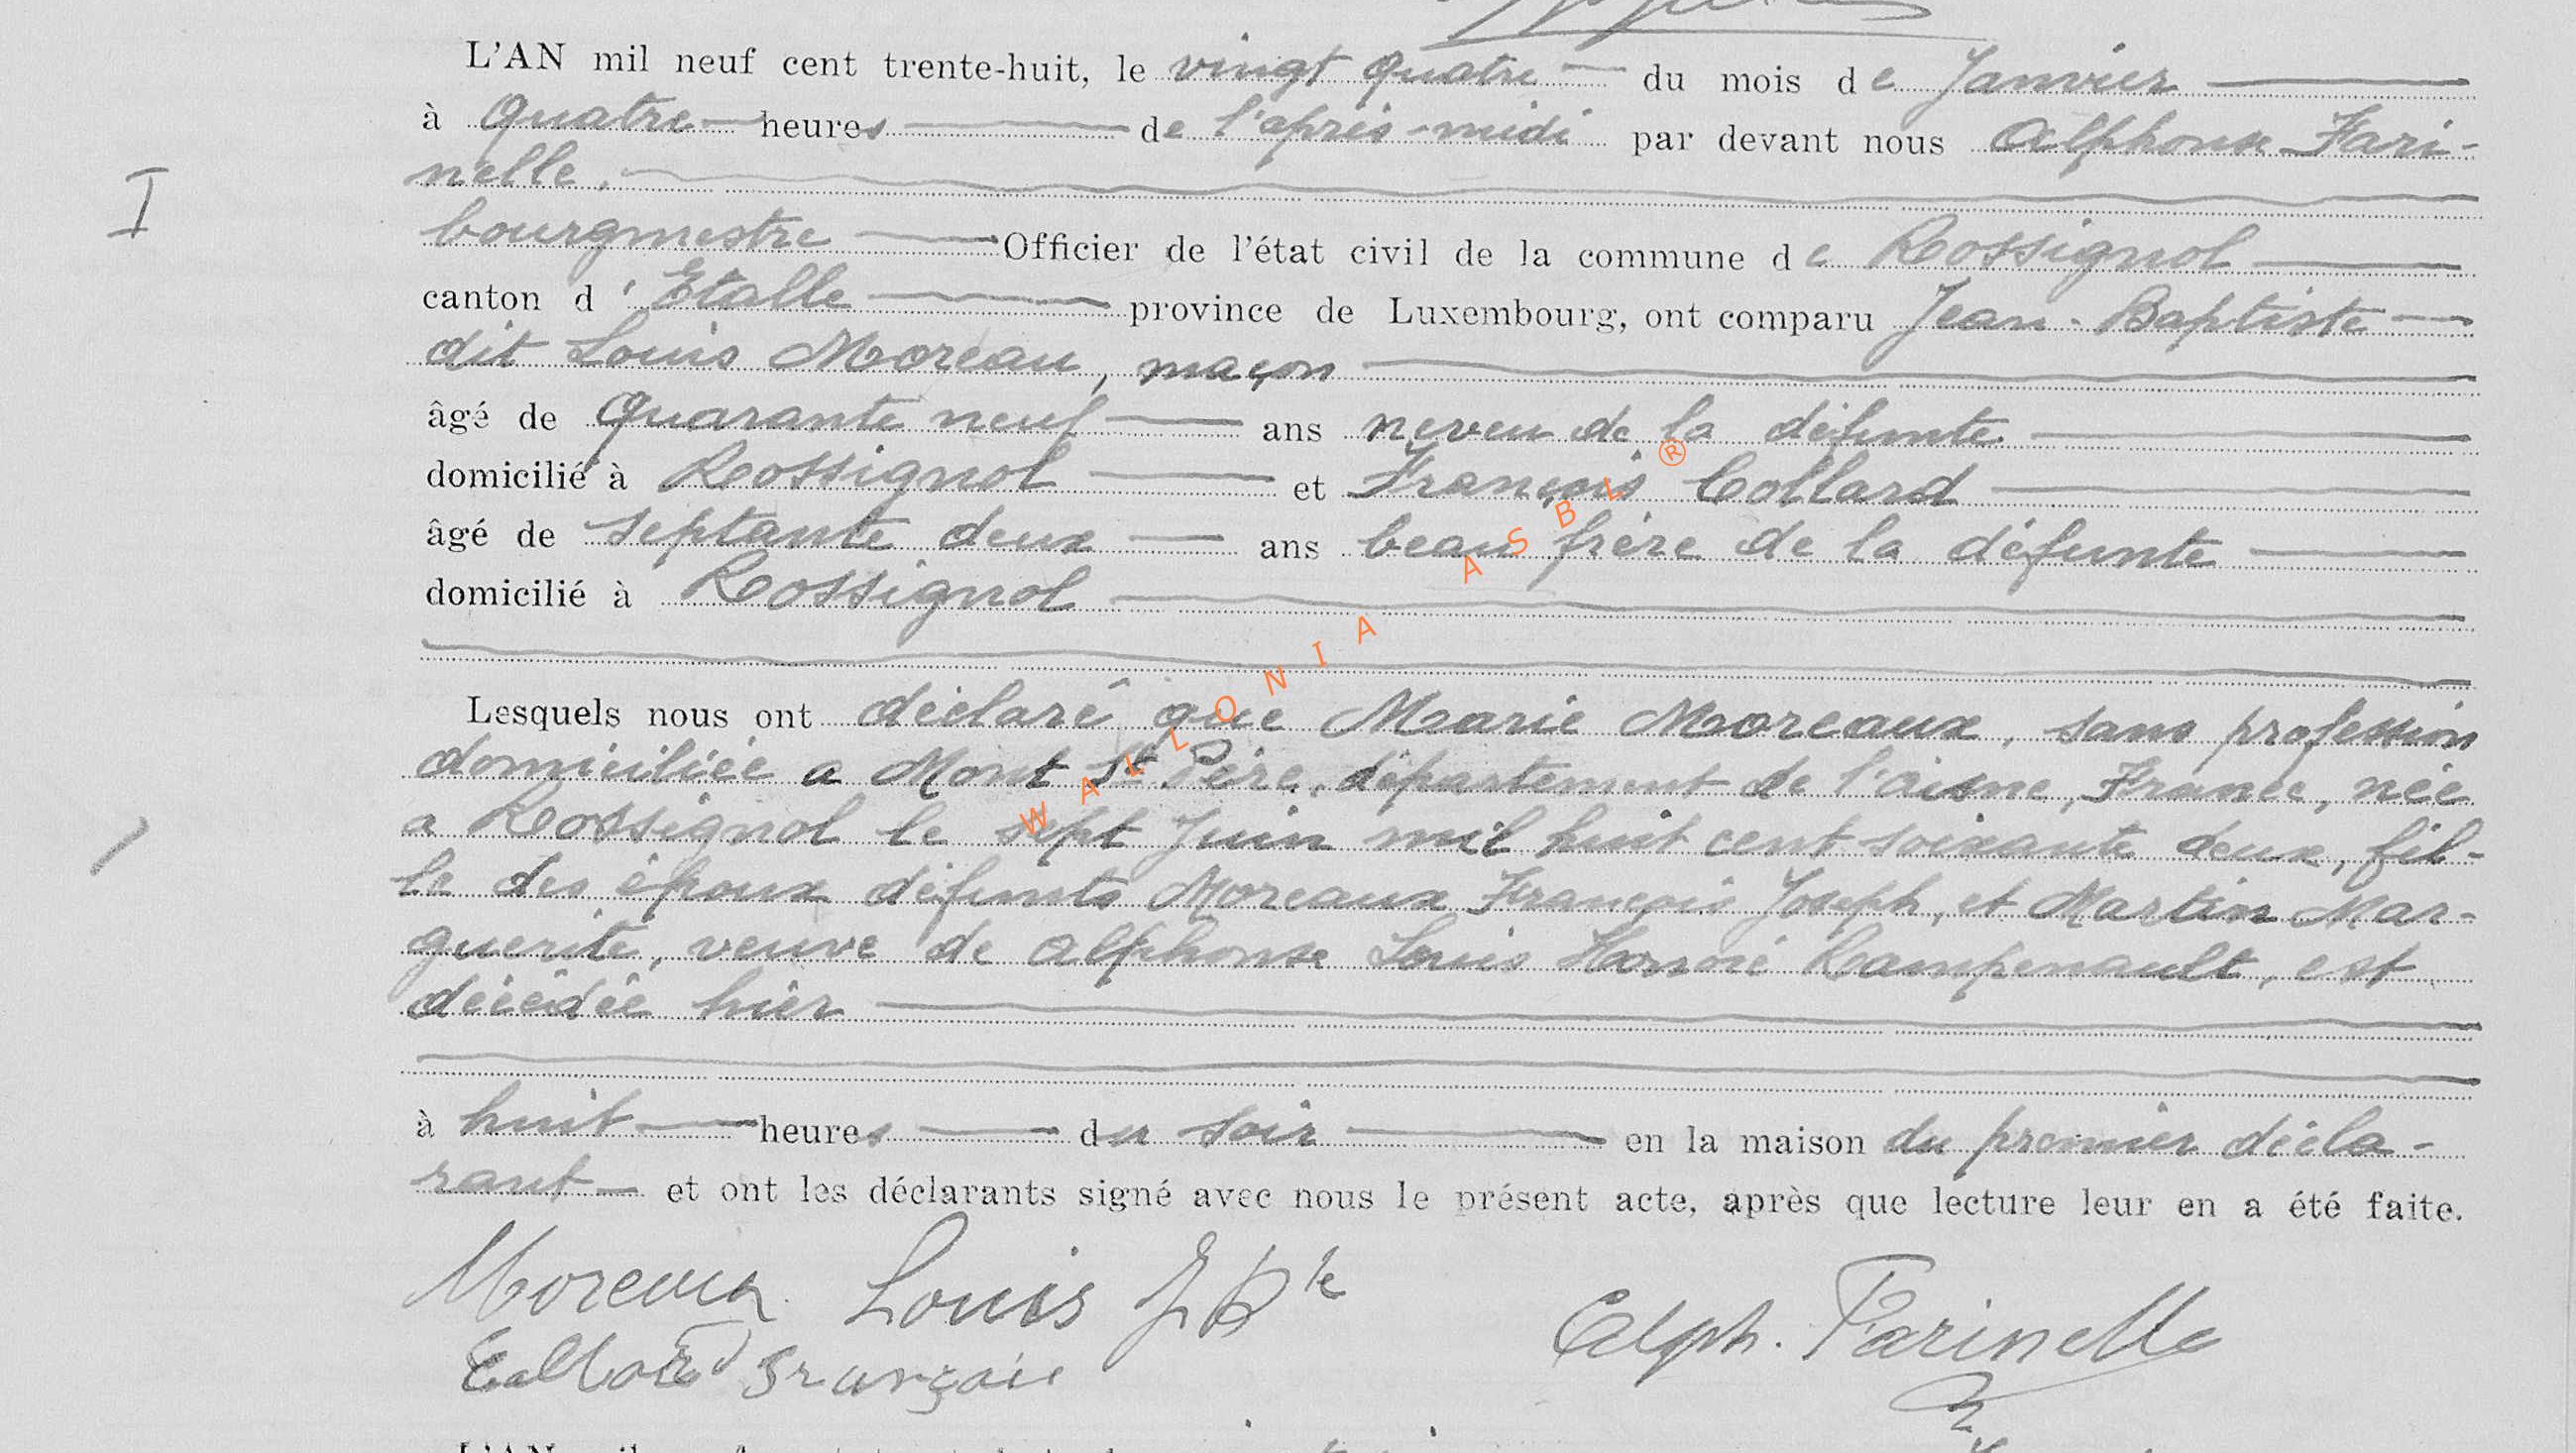 L'AN mil neuf cent trente-huit, le vingt quatre du mois de Janvier
à quatre heures de l'après-midi par devant nous Alphonse Fari-
nelle.
I
bourgmestre Officier de l'état civil de la commune de Rossignol
canton d' Etalle province de Luxembourg, ont comparu Jean-Baptiste
dit Louis Moreau, maçon
âgé de quarante neuf ans neveu de la défunte
domicilié à Rossignol et François Collard
âgé de septante deux ans beau frère de la défunte
domicilié à Rossignol
Lesquels nous ont déclaré que Marie Moreaux, sans profession
domiciliée a Mont St Père, département de l'aisne, France, née
a Rossignol le sept Juin mil huit cent soixante deux, fil-
le des époux défunts Moreaux François Joseph, et Martin Mar-
guerite, veuve de Alphonse Louis Rampenault, est
décédée hier
à huit heures du soir en la maison du premier décla-
rant et ont les déclarants signé avec nous le présent acte, après que lecture leur en a été faite.
Moreaux Louis J Bte
Alph. Farinelle
Collard François
WALLONIA ASBL ®